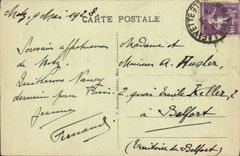 Metz, 9 Mai 1928.
CARTE POSTALE
Souvenir affectueux
de Metz.
Quitterons Nancy
demain pour Paris.
Jeanne
Fernand
Madame et
Monsieur A. Hugler
2 quai Emile Keller, 2
à Belfort
(Territoire de Belfort)